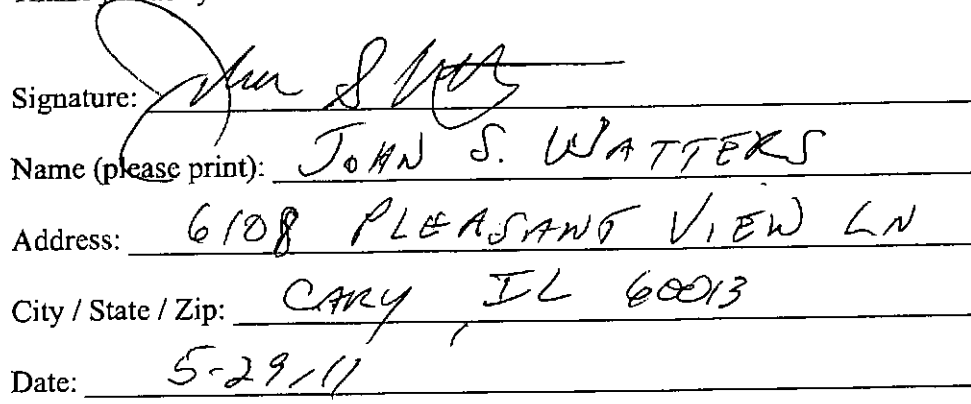 Signature: John S Watters
Name (please print): JOHN S. WATTERS
Address: 6108 PLEASANT VIEW LN
City / State / Zip: CARY, IL 60013
Date: 5-29-11